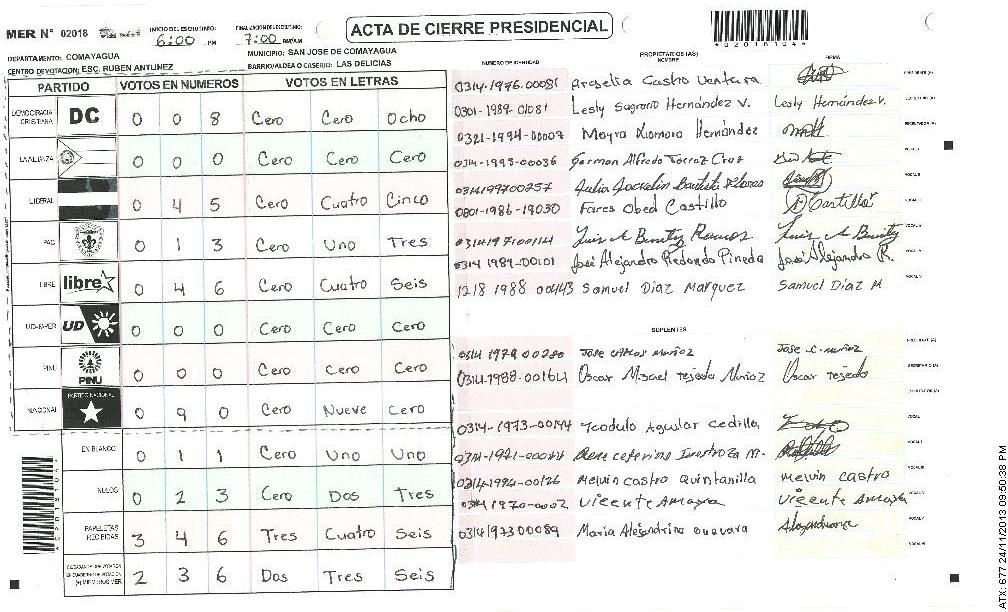 MER N° 02018
INICIO DEL ESCRUTINIO: 6:00 PM
FINALIZACION DEL ESCRUTINIO: 7:00 PM/AM
ACTA DE CIERRE PRESIDENCIAL
DEPARTAMENTO: COMAYAGUA
MUNICIPIO: SAN JOSE DE COMAYAGUA
CENTRO DE VOTACION: ESC. RUBEN ANTUNEZ
BARRIO/ALDEA O CASERIO: LAS DELICIAS
PARTIDO VOTOS EN NUMEROS VOTOS EN LETRAS
DEMOCRACIA CRISTIANA DC 0 0 8 Cero Cero Ocho
LA ALIANZA 0 0 0 Cero Cero Cero
LIBERAL 0 4 5 Cero Cuatro Cinco
PAC 0 1 3 Cero Uno Tres
LIBRE libre 0 4 6 Cero Cuatro Seis
UD-FAPER UD 0 0 0 Cero Cero Cero
PINU PINU 0 0 0 Cero Cero Cero
NACIONAL PARTIDO NACIONAL 0 9 0 Cero Nueve Cero
EN BLANCO 0 1 1 Cero Uno Uno
NULOS 0 2 3 Cero Dos Tres
PAPELETAS RECIBIDAS 3 4 6 Tres Cuatro Seis
2 3 6 Dos Tres Seis
NUMERO DE IDENTIDAD PROPIETARIOS (AS) NOMBRE FIRMA
0314-1976-00081 Argelia Castro Ventura
0301-1989-01081 Lesly Sagrario Hernández V. Lesly Hernández V.
0321-1994-00007 Mayra Xiomara Hernández
0314-1998-00036 German Alfredo Torrez Cruz
0314199700257 Julia Jackelin Bautista Flores
0801-1986-19030 Fares Obed Castillo Castillo
0314197100114 Luis A Benitez Ramos Luis A Benitez
0314 1989-00101 José Alejandro Redondo Pineda José Alejandro R.
1218 1988 00443 Samuel Diaz Marquez Samuel Diaz M
SUPLENTES
0314 1979 00280 Jose Carlos Muñoz Jose C. Muñoz
0314-1988-00164 Oscar Misael Tejeda Muñoz Oscar Tejeda
0314-1973-00144 Teodulo Aguilar Cedillo
Rene Ceferino Inestroza M.
0314-1994-00126 Melvin Castro Quintanilla Melvin Castro
0314-1970-0002 Vicente Amaya Vicente Amaya
0314197300089 Maria Alejandrina Guevara Alejandrina
ATX: 677 24/11/2013 09:50:38 PM